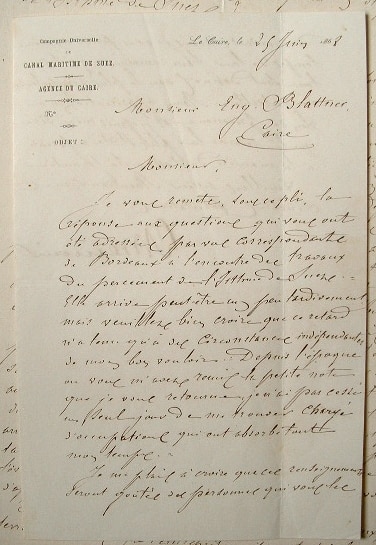 Compagnie Universelle
DU
CANAL MARITIME DE SUEZ.
AGENCE DU CAIRE.
N°
OBJET:
Le Caire, le 25 Juin 1863
Monsieur Eug. Blattner
Caire
Monsieur,
Je vous remets, sous ce pli, la
réponse aux questions qui vous ont
été adressées par vos correspondants
de Bordeaux à l'encontre des travaux
du percement de l'Isthme de Suez.
Elle arrive peut-être un peu tardivement
mais veuillez bien croire que ce retard
n'a tenu qu'à des circonstances indépendantes
de mon bon vouloir. Depuis l'époque
où vous m'avez remis la petite note
que je vous retourne, je n'ai pas cessé
un seul jour de me trouver chargé
d'occupations qui ont absorbé tout
mon temps.
Je me plais à croire que ces renseignements
seront goûtés des personnes qui vous les